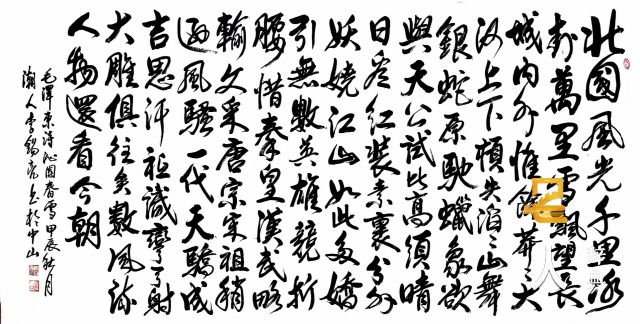 北國風光千里冰
封萬里雪飄望長
城内外惟餘莽〻大
河上下頓失滔〻山舞
銀蛇原馳蠟象欲
與天公試比高須晴
日看紅裝素裹分外
妖嬈江山如此多嬌
引無數英雄競折
腰惜秦皇漢武略
輸文采唐宗宋祖稍
遜風騷一代天驕成
吉思汗祗識彎弓射
大雕俱往矣數風流
人物還看今朝
毛澤東詩沁園春雪甲辰秋月
人李錫亮書於中山